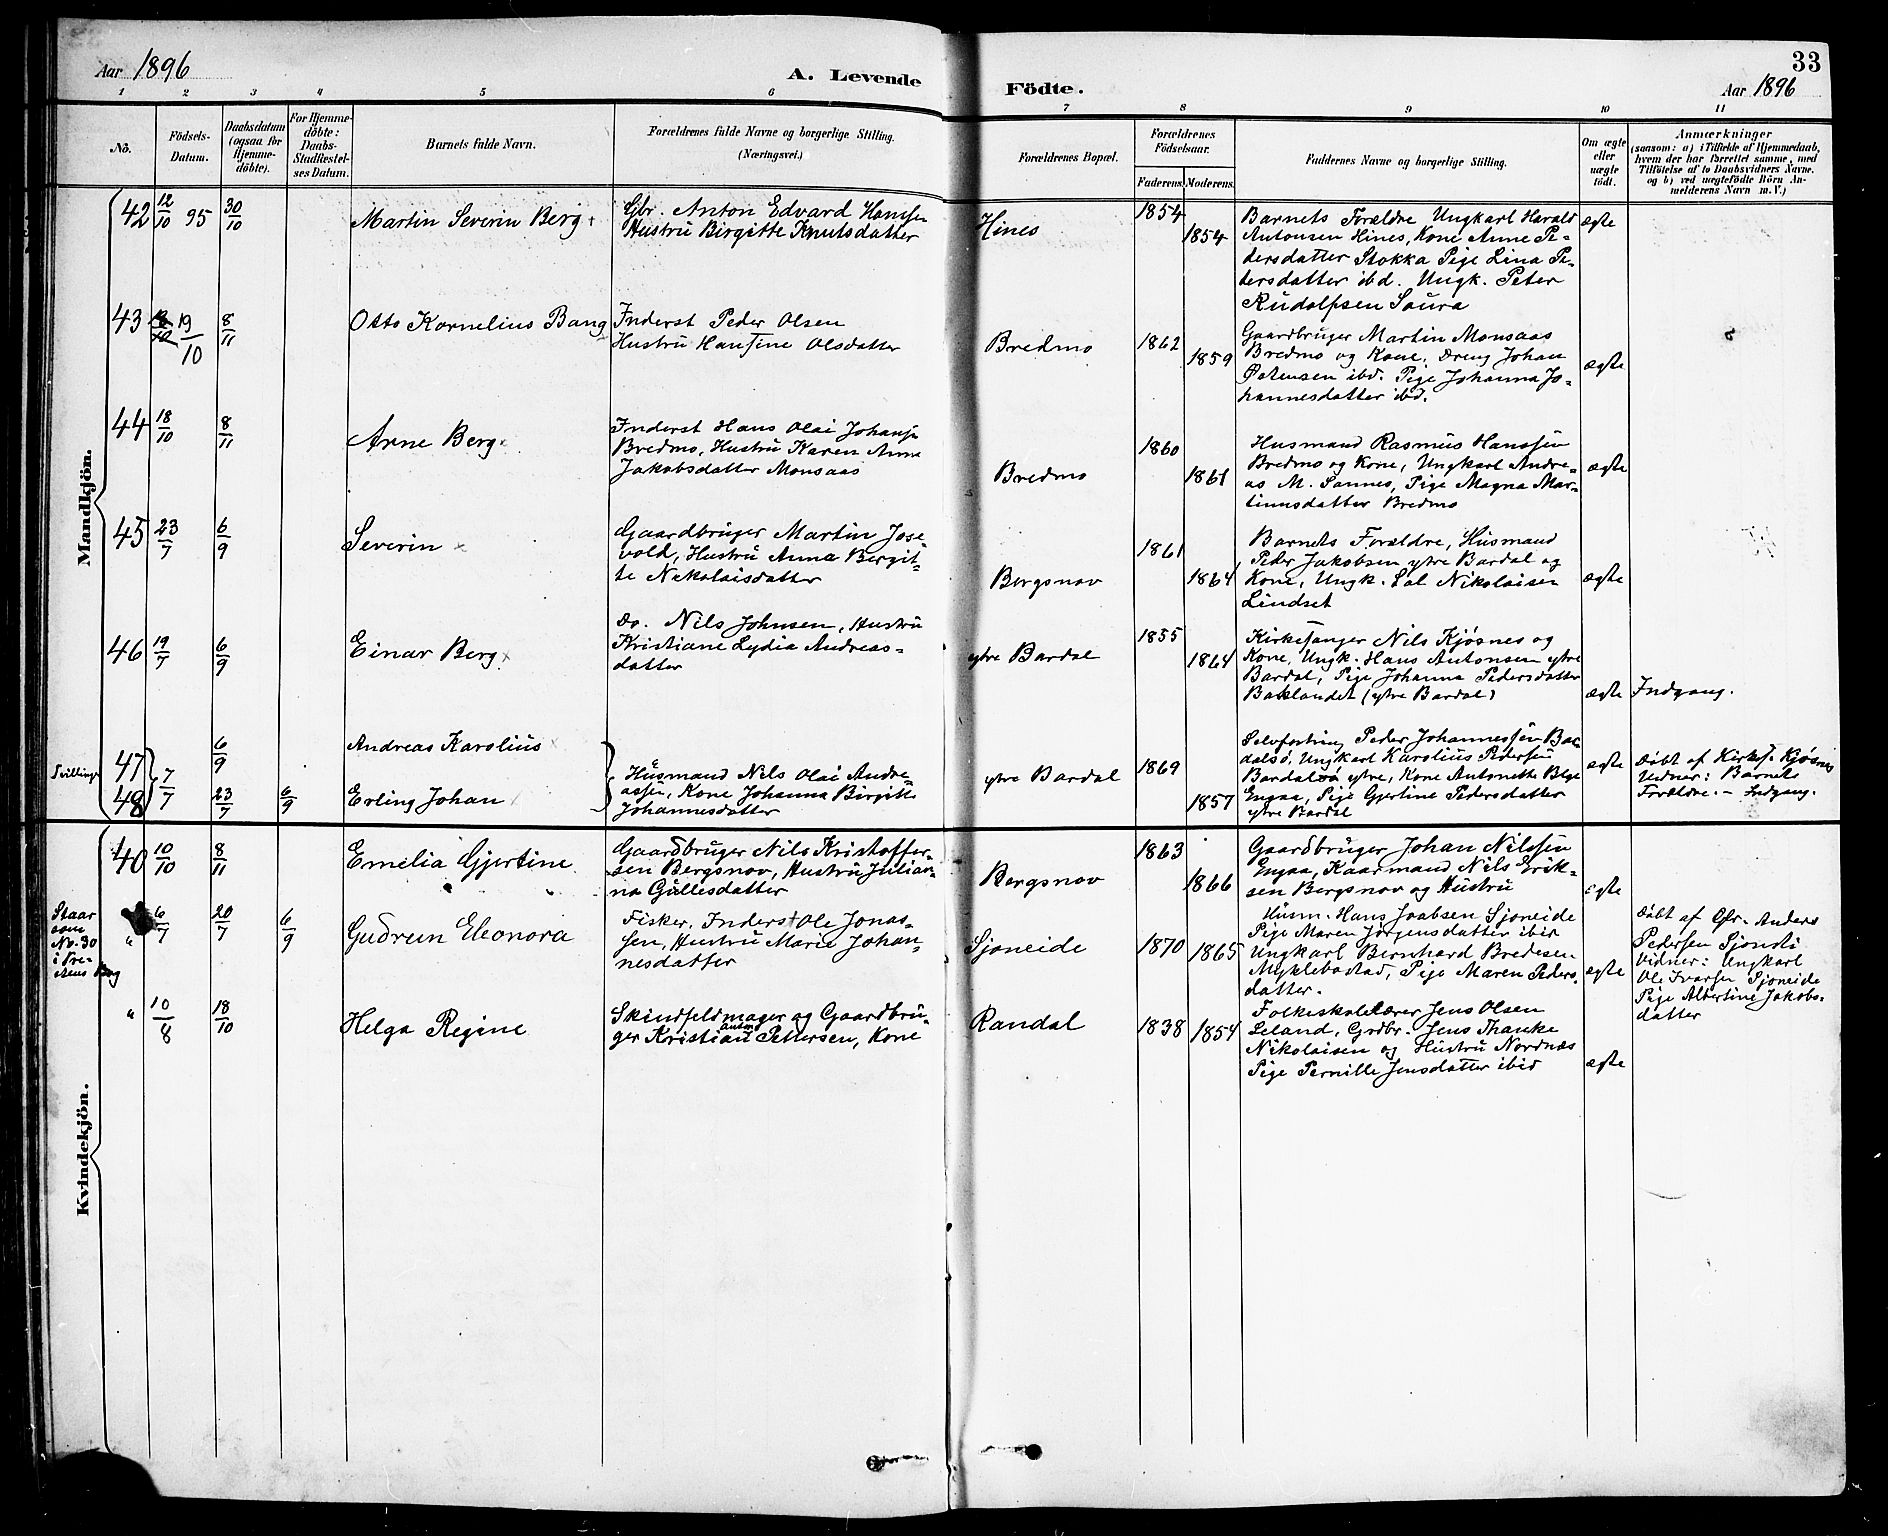 Aar 1896
A. Levende
Födte.
33
Aar 1896
1 2 3 4 5 6 7 8 9 10 11
No.
Födsels-
Datum.
Daabsdatum
(ogsaa for
Hjemme-
döbte).
For Hjemme-
döbte:
Daabs-
Stadfæstel-
ses Datum.
Barnets fulde Navn.
Forældrenes fulde Navne og borgerlige Stilling.
(Næringsvei.)
Forældrenes Bopæl.
Forældrenes
Födselsaar.
Faderens. Moderens.
Faddernes Navne og borgerlige Stilling.
Om ægte
eller
uægte
födt.
Anmærkninger
(saasom: a) i Tilfælde af Hjemmedaab,
hvem der har forrettet samme, med
Tilföielse af to Daabsvidners Navne.
og b) ved uægtefödte Börn An-
melderens Navn m. V.)
Mandkjön.
42 12/10 95 30/10
Martin Severin Berg
Gbr. Anton Edvard Hansen
Hustru Birgitte Knutsdatter
Hines
1854
1854
Barnets Forældre Ungkarl Harald
Antonsen Hines, Kone Anne Pe-
dersdatter Stokka Pige Lina Pe-
dersdatter ibd. Ungk. Peter
Rudolfsen Saura
ægte
43 19/10 8/11
Otto Kornelius Bang
Inderst Peder Olsen
Hustru Hansine Olsdatter
Bredmo
1862
1859
Gaardbruger Martin Monsaas
Bredmo og Kone, Dreng Johan
Petersen ibd. Pige Johanna Jo-
hannesdatter ibd.
ægte
44 18/10 8/11
Arne Berg
Inderst Hans Olai Johansen
Bredmo, Hustru Karen Anna
Jakobsdatter Monsaas
Bredmo
1860
1861
Husmand Rasmus Hanssen
Bredmo og Kone, Ungkarl Andre-
as M. Sannes, Pige Magna Mar-
tinusdatter Bredmo
ægte
45 23/7 6/9
Severin
Gaardbruger Martin Jose-
vold, Hustru Anna Bergit-
te Nikolaisdatter
Bergsnov
1861
1864
Barnets Forældre, Husmand
Peder Jakobsen ytre Bardal og
Kone, Ungk. Sal Nikolaisen
Lindset
ægte
46 19/7 6/9
Einar Berg
Do. Nils Johnsen, Hustru
Kristiane Lydia Andreas-
datter
ytre Bardal
1855
1864
Kirkesanger Nils Kjøsnes og
Kone, Ungk. Hans Antonsen ytre
Bardal, Pige Johanna Pedersdatter
Baklandet (ytre Bardal)
ægte
Indgang.
Tvillinge
47 7/7 6/9
Andreas Karolius
48 23/7 6/9
Erling Johan
Husmand Nils Olai Andre-
assen, Kone Johanna Birgitte
Johannesdatter
ytre Bardal
1869
1857
Selvfostring Peder Johannessen Bar-
dalsø, Ungkarl Karolius Pedersen
Bardalsø ytre, Kone Antonette
Engaa, Pige Gjertine Pedersdatter
ytre Bardal
ægte
Døbt af Kirkes. Kjøsnes
Vidner: Barnets
Forældre. – Indgang.
Kvindekjön.
40 10/10 8/11
Emelia Gjertine
Gaardbruger Nils Kristoffer-
sen Bergsnov, Hustru Julian-
na Gullesdatter
Bergsnov
1863
1866
Gaardbruger Johan Nilssen
Engaa, Kaarmand Nils Erik-
sen Bergsnov og Hustru
ægte
Staar
som
No. 30
i Præ-
stens Bog
" 6/7 20/7 6/9
Gudrun Eleonora
Fisker, Inderst Ole Jonas-
sen, Hustru Marie Johan-
nesdatter
Sjoneide
1870 1865
Husm. Hans Joabsen Sjoneide
Pige Maren Jørgensdatter ibid
Ungkarl Bernhard Bredesen
Myklebostad, Pige Maren Peders-
datter.
ægte
Døbt af Gbr. Anders
Pedersen Sjonsti
Vidner: Ungkarl
Ole Ivarsen Sjoneide
Pige Albertine Jakobs-
datter
" 10/8 18/10
Helga Regine
Skindfeldmager og Gaardbru-
ger Kristian Anton Pettersen, Kone
Randal
1838 1854
Folkeskolelærer Jens Olsen
Leland, Grdbr. Jens Thanke
Nikolaisen og Hustru Nordnæs
Pige Pernille Jensdatter ibid
ægte